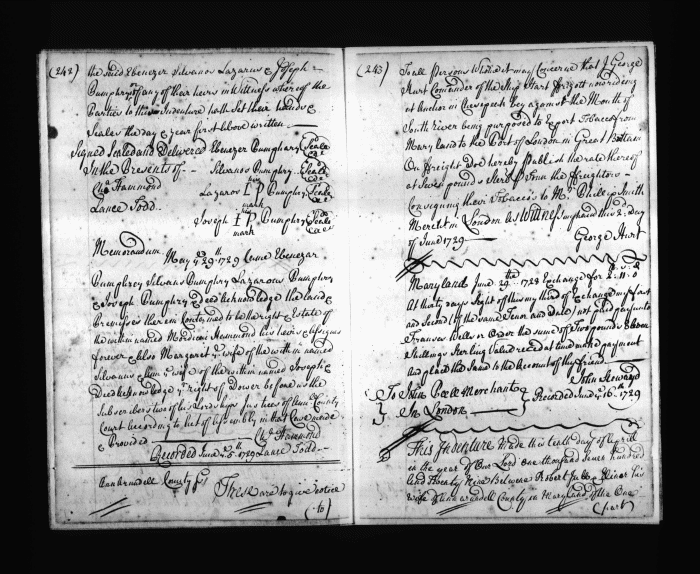 (242)
the said Ebenezer Silvanos Lazarus & Joseph
Bumphry or any of their heirs in Wittness whereof the
Parties to these Indenture hath Set their hands &
Seales the day & year first above written
Signed Sealed and Delivered Ebenezer Bumphry Seale
In the Presents of Silvanos Bumphry Seale
Cha Hammond Lazaros I P Bumphry Seale
mark
Lance Todd
Joseph I P Bumphry Seale
mark
Memorandum
May ye 29th 1729 Came Ebenezar
Bumphrey Silvanus Bumphry Lazarous Bumphry
& Joseph Bumphry & did acknowledge the land &
Premises therein Contained to be the right & Estate of
the within named Mordicai Hammond his heirs & Assigns
forever & also Margaret ye wife of the within named
Silvanus & wife of the within named Joseph &
Did acknowledge ye right of Dower before us the
Subscribers two of his Lordships Justices of Ann County
Court according to Act of Assembly in that Case made
& Provided Cha Hammond
Recorded June ye 5th 1729 Lance Todd
Annarundell County Ss
These are to give notice
(to)
(243)
To all Persons Whome it may Concerne that I George
Hurt Comander of the Ship now riding
at Anchor in Chesepeek bay against the Mouth of
South River being purposed to Export Tobaccos from
Mary land to the Port of London in Great Brittain
On freight Doe hereby Publish the rate thereof
at Seven pounds Sterl p Tonn the freighters
Consigning their Tobaccos to Mr Philip Smith
Mercht in London As Wittness my hand this 2 day
of June 1729 George Hurt
Maryland June 29th 1728 Exchange for 2:11:0
At thirty days Sight of this my third of Exchange my first
and Second of the same Tenor and Date not paid pay unto
Frances Wells or Order the sume of Two pounds Eleven
Shillings Sterling Value receed at time make payment
And place the Same to the Account of thy friend
John Steward
To John Bell Merchant
In London
Recorded June ye 16th 1729
This Indenture Made this tenth day of Aprill
in the year of Our Lord One thousand Seven hundred
And Twenty Nine Between Robert Jubb & Elinor his
Wife of Ann arundell County in Maryland of the One
(part)